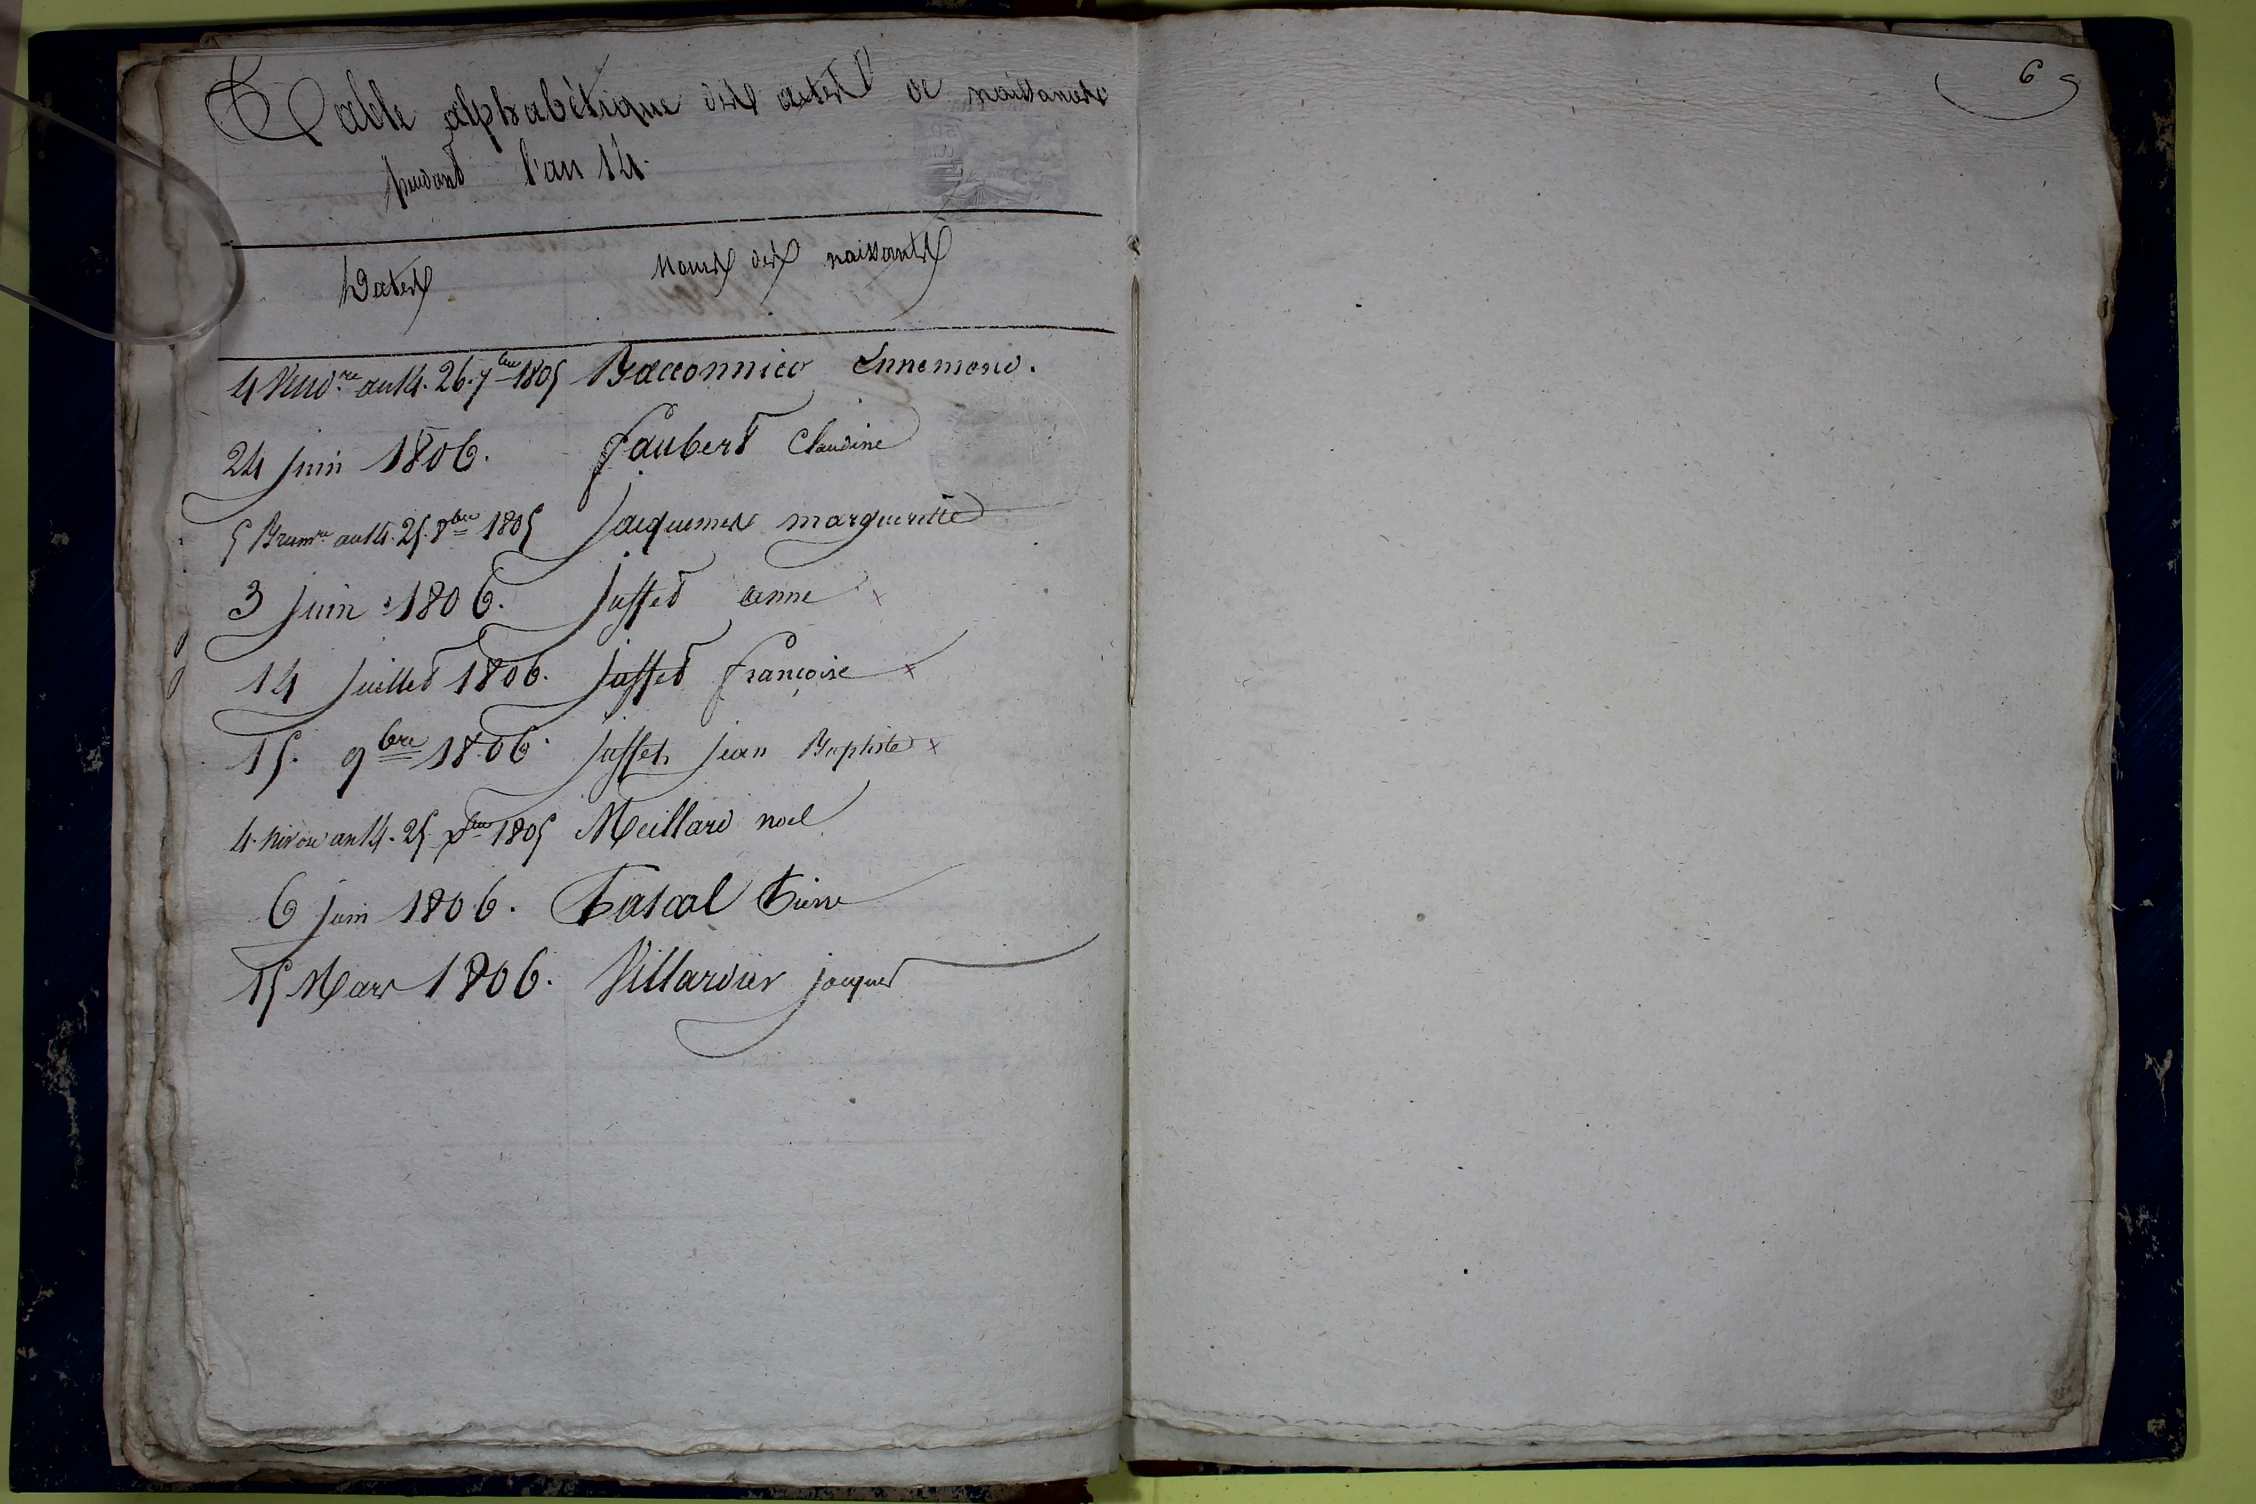 Table alphabétique des actes de naissances
pendant l'an 14.
Dates Noms des naissants
4 Vend.re an 14. 26. 7bre 1805 Bacconnier Ennemond.
24 juin 1806. Faubert Claudine
5 Brum.re an 14. 25. 8bre 1805 Jacquemet margueritte
3 juin 1806. Juffet anne x
14 Juillet 1806. Juffet françoise x
15. 9bre 1806 Juffet jean Baptiste x
4. nivose an 14. 25 xbre 1805 Meillard noel
6 juin 1806. Pascal Pierre
15 Mars 1806. Villardier jacques
6